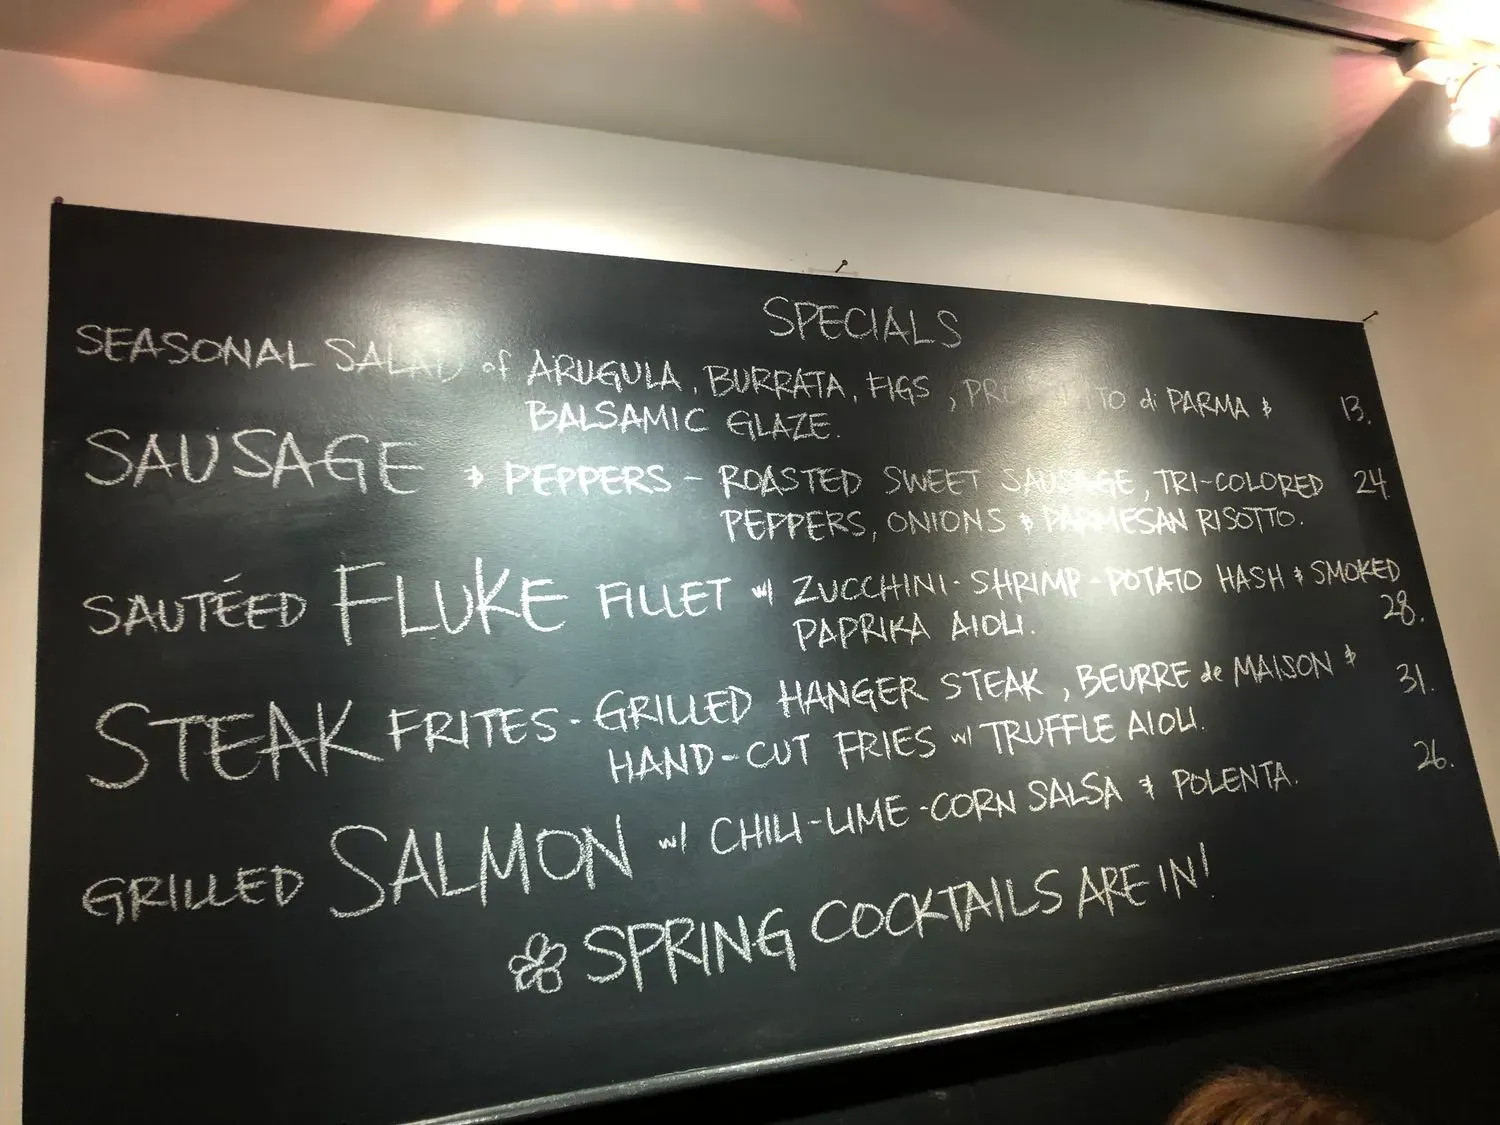 SPECIALS
SEASONAL SALAD of ARUGULA, BURRATA, FIGS, PROSCIUTTO di PARMA & 13.
BALSAMIC GLAZE.
SAUSAGE & PEPPERS - ROASTED SWEET SAUSAGE, TRI-COLORED 24
PEPPERS, ONIONS & PARMESAN RISOTTO.
SAUTÉED FLUKE FILLET w/ ZUCCHINI-SHRIMP-POTATO HASH & SMOKED
PAPRIKA AIOLI. 28.
STEAK FRITES - GRILLED HANGER STEAK, BEURRE de MAISON & 31.
HAND-CUT FRIES w/ TRUFFLE AIOLI.
GRILLED SALMON w/ CHILI-LIME-CORN SALSA & POLENTA. 26.
SPRING COCKTAILS ARE IN!